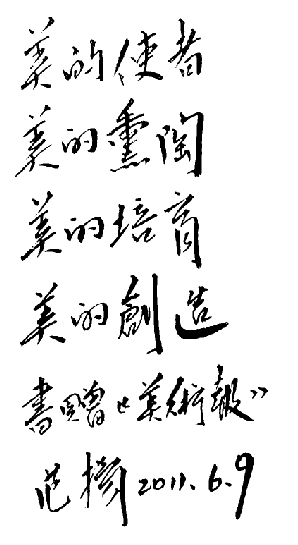 美的使者
美的熏陶
美的培育
美的創造
書贈《美術報》
范 2011.6.9